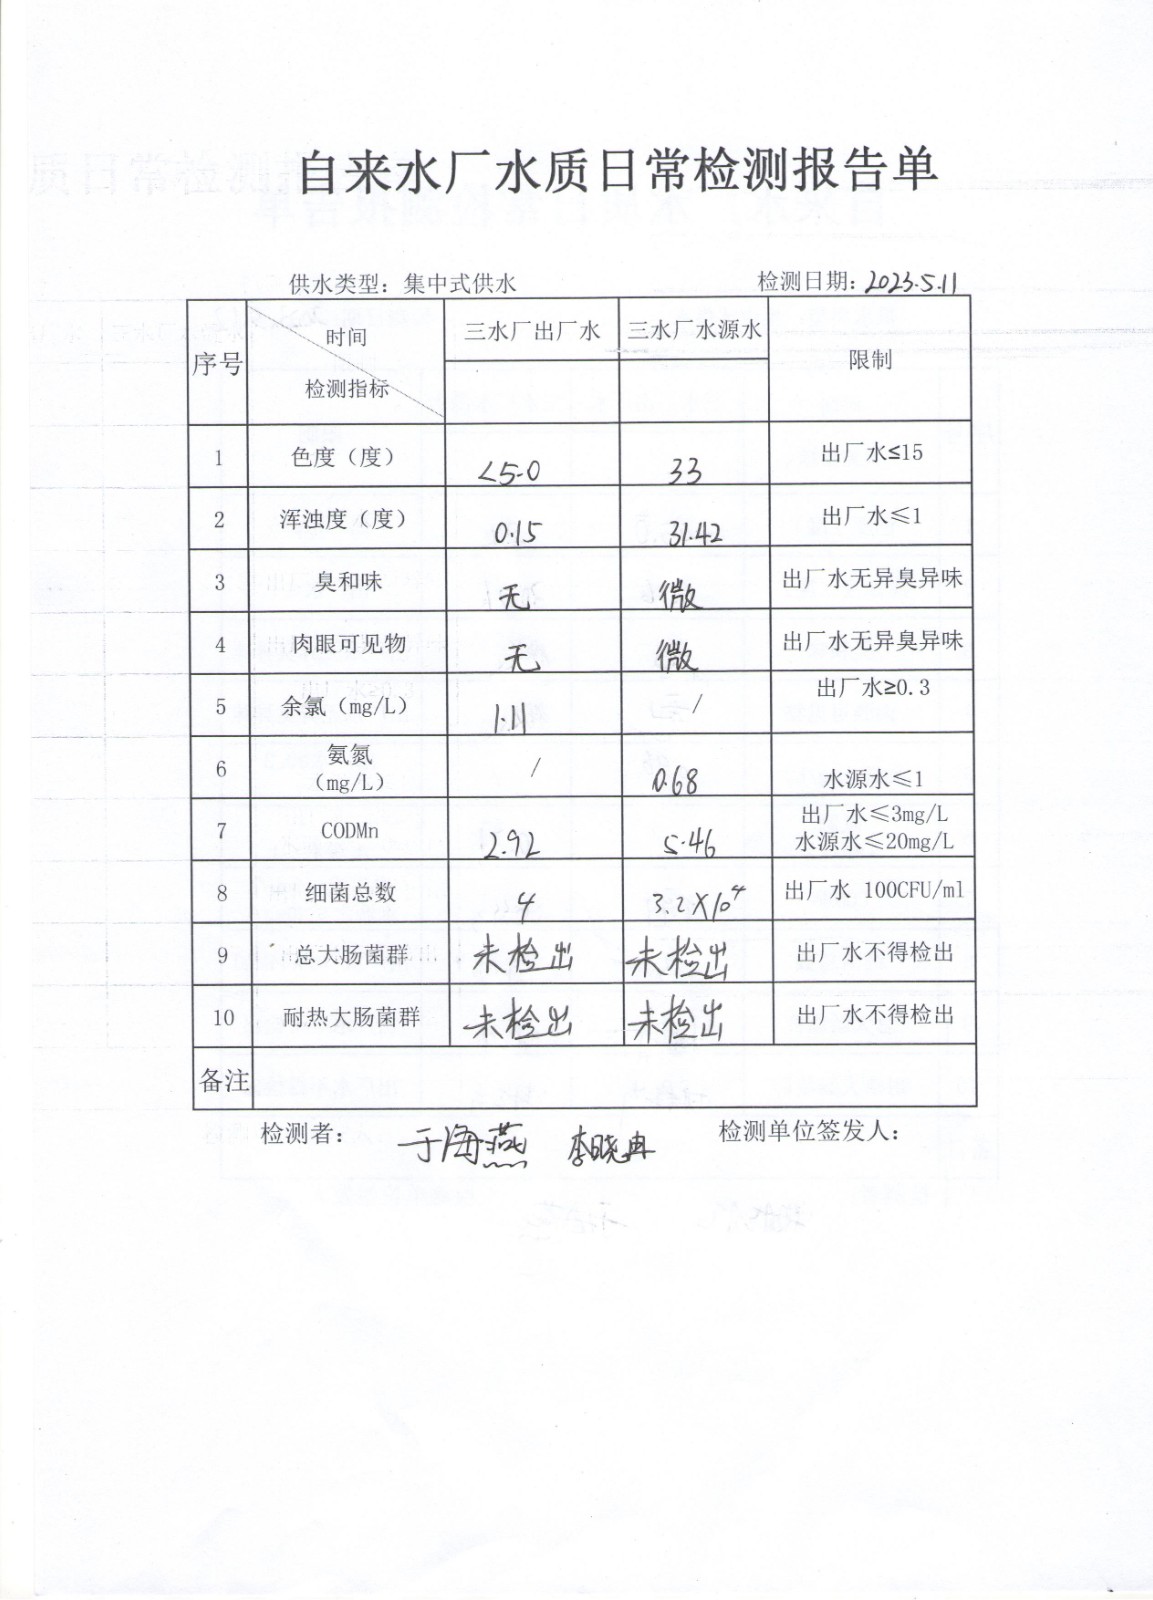 自来水厂水质日常检测报告单
供水类型：集中式供水 检测日期：2023.5.11
序号 时间 检测指标 三水厂出厂水 三水厂水源水 限制
1 色度（度） <5.0 33 出厂水≤15
2 浑浊度（度） 0.15 31.42 出厂水≤1
3 臭和味 无 微 出厂水无异臭异味
4 肉眼可见物 无 微 出厂水无异臭异味
5 余氯（mg/L） 1.11 / 出厂水≥0.3
6 氨氮（mg/L） / 0.68 水源水≤1
7 CODMn 2.92 5.46 出厂水≤3mg/L 水源水≤20mg/L
8 细菌总数 4 3.2×10⁴ 出厂水 100CFU/ml
9 总大肠菌群 未检出 未检出 出厂水不得检出
10 耐热大肠菌群 未检出 未检出 出厂水不得检出
备注
检测者： 于海燕 李晓冉 检测单位签发人：